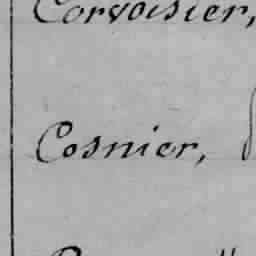 Corvoisier,
Cosnier,